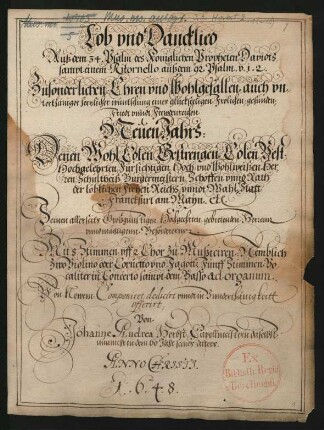 Lob vnd Dancklied
Auß dem 34. Psalm des Königlichen Propheten Davids
sampt einem Ritornello außerm 92. Psalm. v. 1. 2.
Zu sonderlichen Ehren und Wohlgefallen, auch
glückseeligen Frölichen gesunden
Fried- vnnd Freudenreichen
Neuen Jahrs.
Denen Wohl Edlen Gestrengen Edlen Vest
Hochgelehrten Fürsichtigen Hoch vnd Wohlweisen Her
ren Schultheiß Bürgermeistern Schöffen vnnd Rath
der löblichen freyen Reichs vnnd Wahl Statt
Franckfurt am Mayn. etc.
Seinen allerseits Großgünstigen Hochgeehrten gebietenden Herren
Mit 8 Stimmen vff 2 Chor Zu Musiceren, Nemblich
Zwo Violino oder Cornetto vnd Fagott. Fünff Stimmen Vo
cal iter in Concerto sampt dem Basso ad organum.
Von Newem Componirt dedicirt vnnd in
offerirt
Von
Johanne Andrea Herbst, Capellmeistern daselbst
seines alters.
ANNO CHRISTI.
1. 6. 4. 8.
Ex
Biblioth. Regia
Berolinensi.